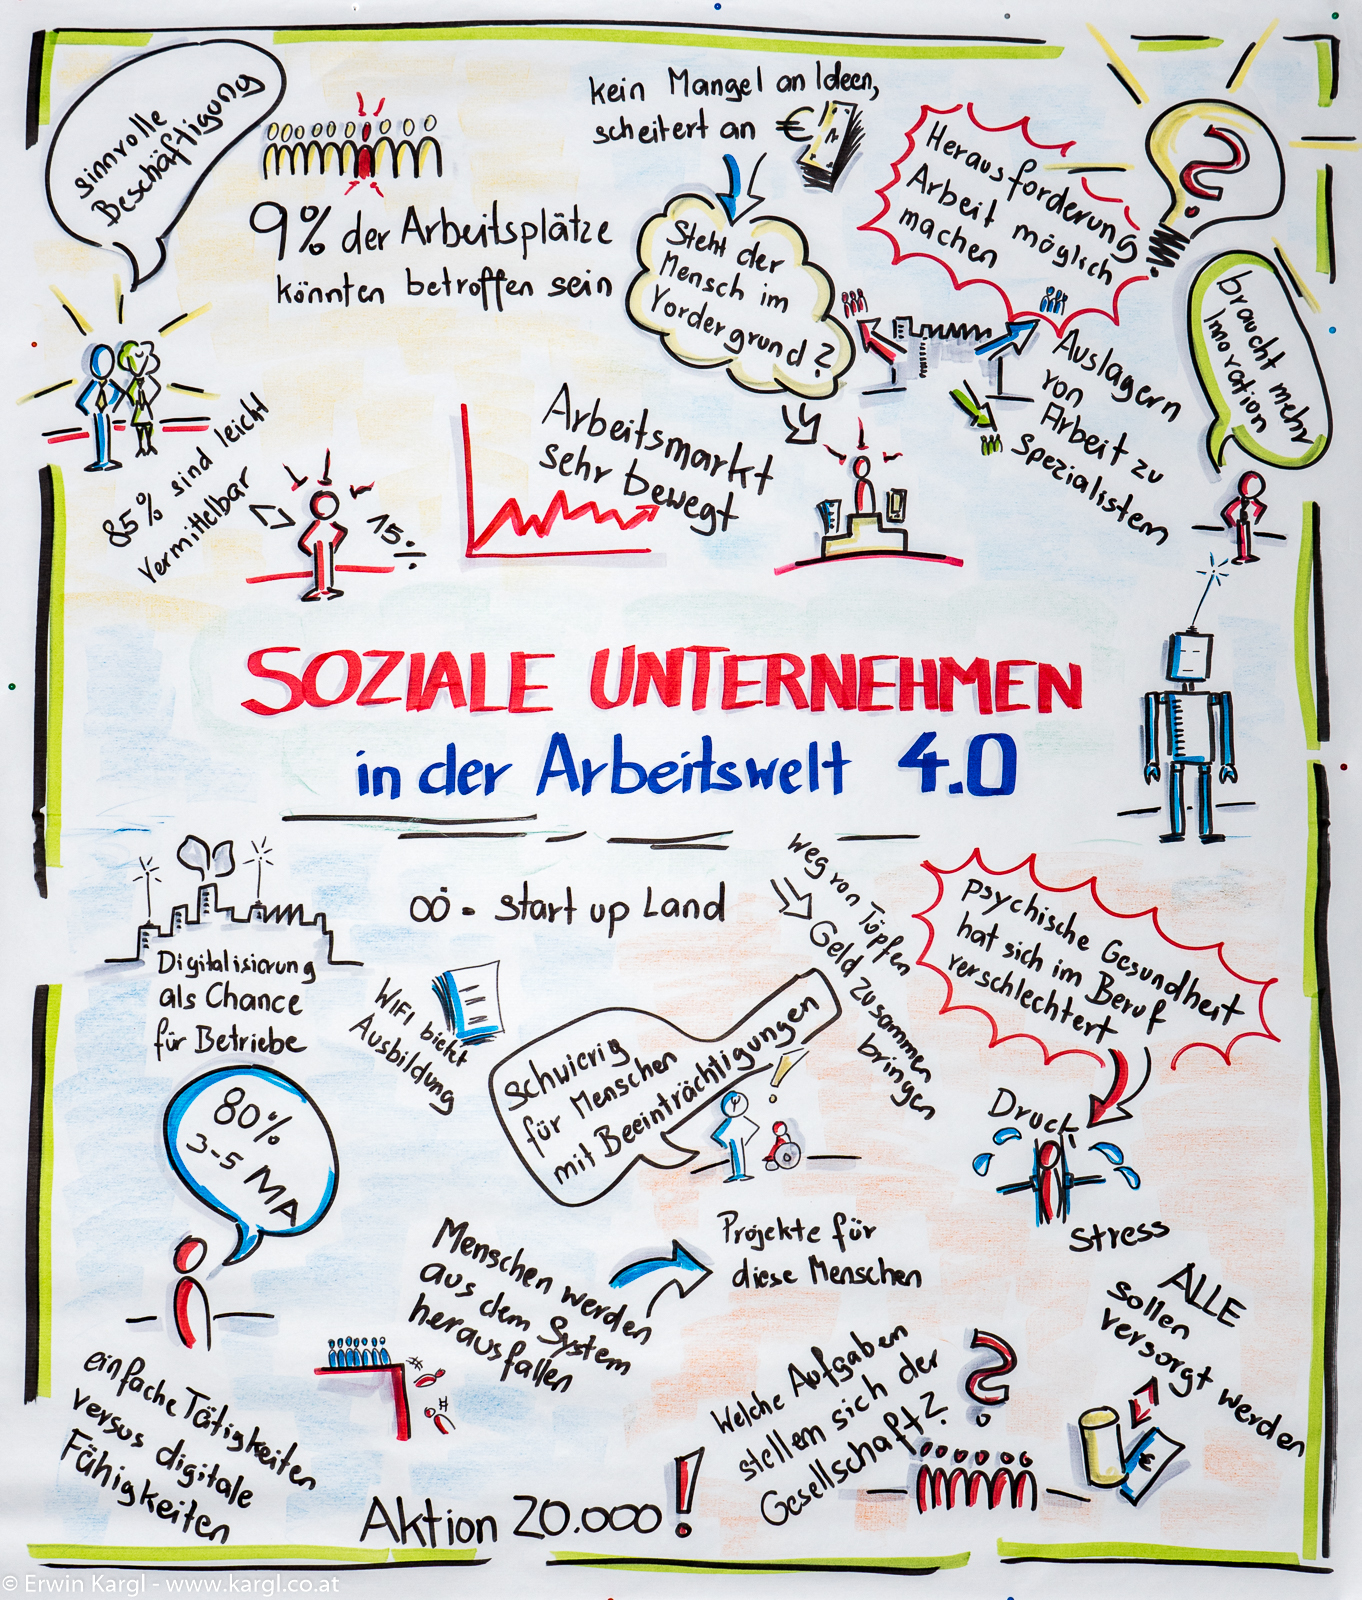 sinnvolle
Beschäftigung
9% der Arbeitsplätze
könnten betroffen sein
kein Mangel an Ideen,
scheitert an €
Steht der
Mensch im
Vordergrund?
Herausforderung
Arbeit möglich
machen
?
braucht mehr
Innovation
Auslagern
von
Arbeit zu
Spezialisten
85% sind leicht
Vermittelbar
15%
Arbeitsmarkt
sehr bewegt
SOZIALE UNTERNEHMEN
in der Arbeitswelt 4.0
Digitalisierung
als Chance
für Betriebe
OÖ - Start up Land
WIFI bietet
Ausbildung
weg von Töpfen
Geld zusammen
bringen
psychische Gesundheit
hat sich im Beruf
verschlechtert
Schwierig
für Menschen
mit Beeinträchtigungen
!
Druck
Stress
80%
3-5 MA
einfache Tätigkeiten
versus digitale
Fähigkeiten
Menschen werden
aus dem System
herausfallen
Projekte für
diese Menschen
ALLE
sollen
versorgt werden
€
Welche Aufgaben
stellen sich der
Gesellschaft?
?
Aktion 20.000!
© Erwin Kargl - www.kargl.co.at